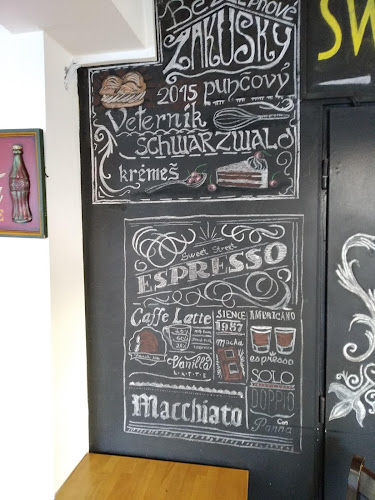 Bezlepkové
ZÁKUSKY
2015 punčový
Veterník
SCHWARZWALD
krémeš
SW
Sweet Street
ESPRESSO
Caffe Latte
Vanilla
LATTE
SIENCE
1987
mocha
AMERICANO
espresso
SOLO
DOPPIO
Con
Panna
Macchiato